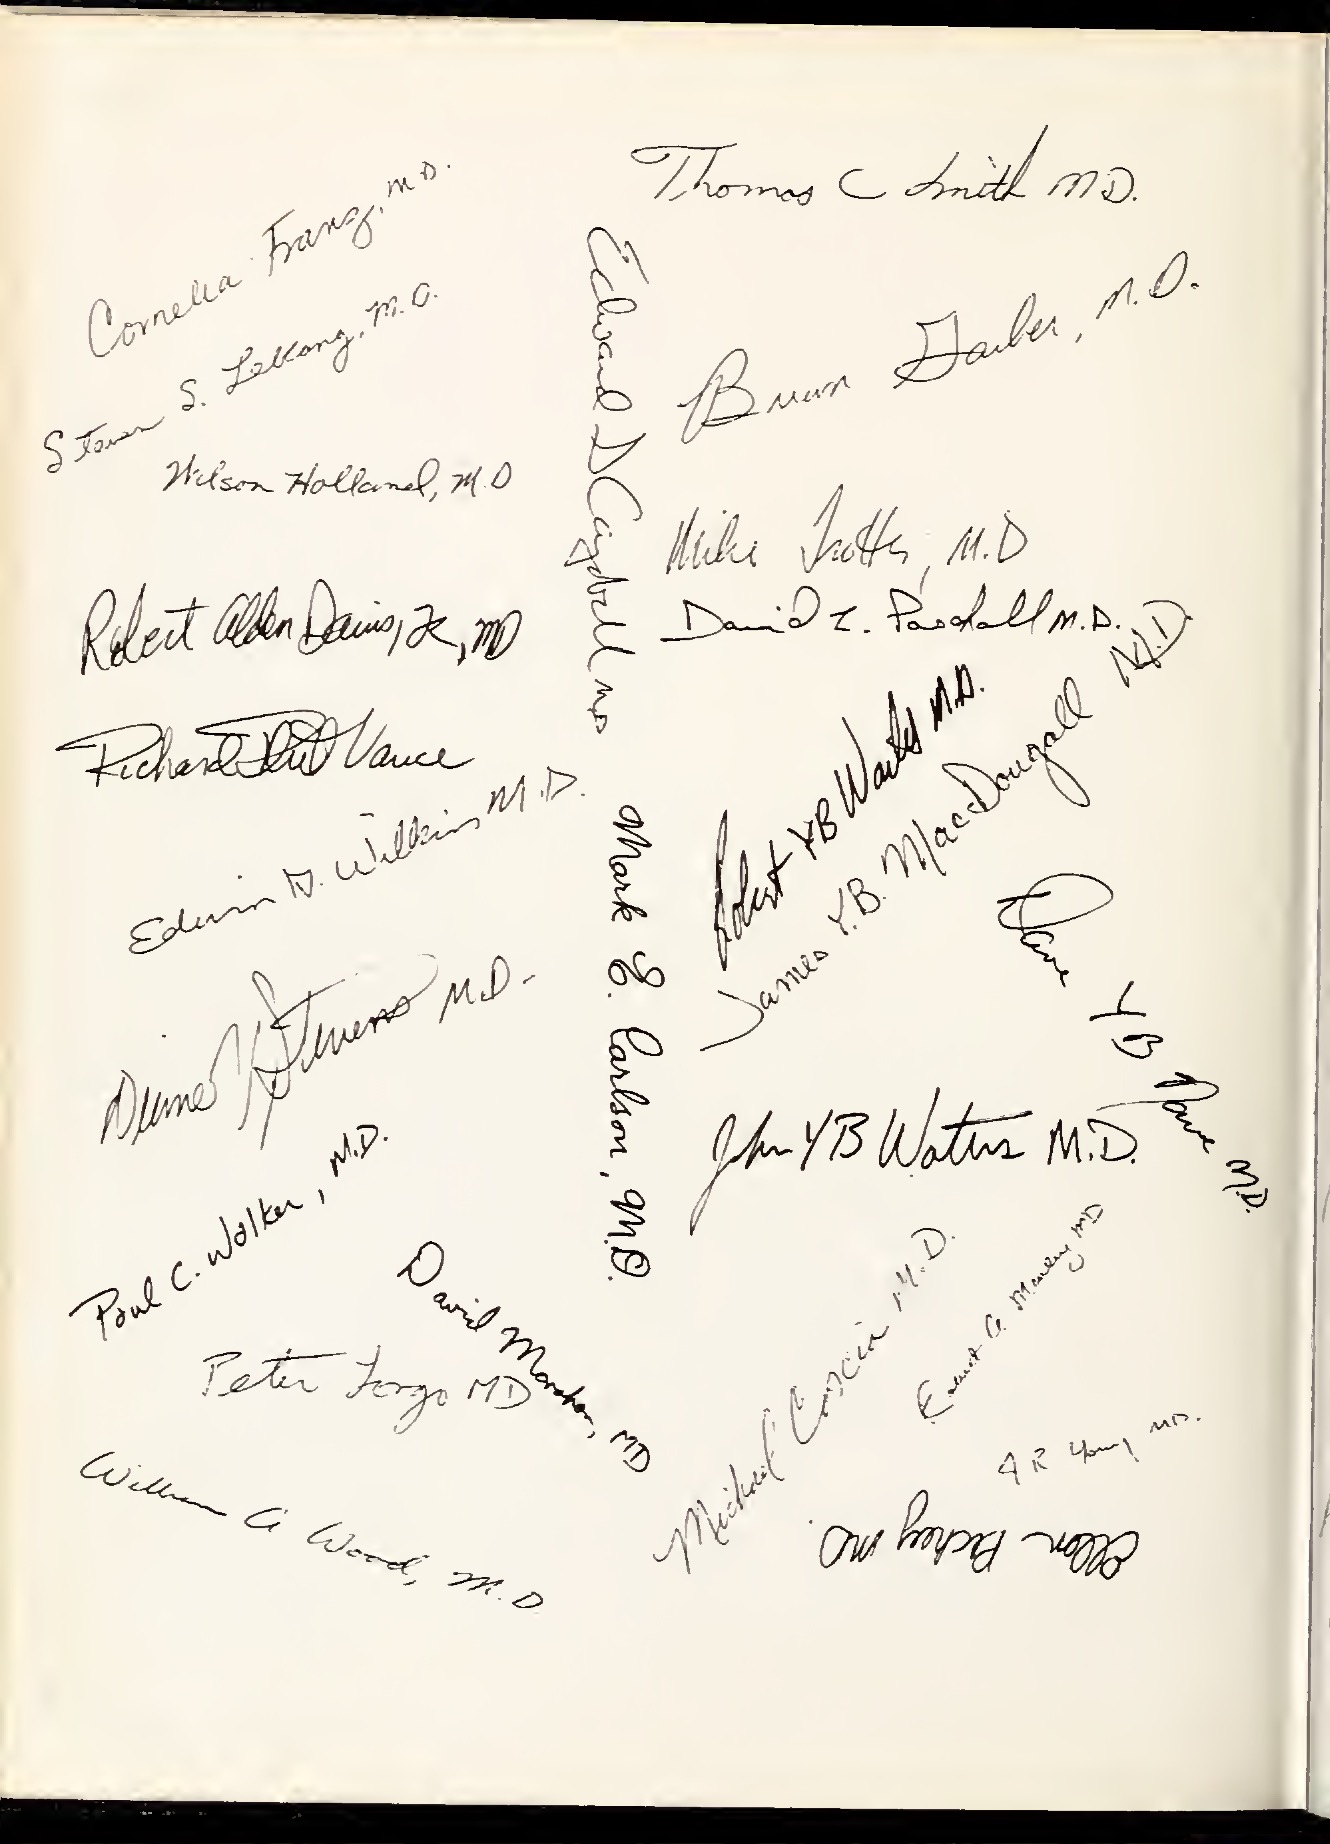 Cornelia Franz, M.D.
Steven S. Lekang, M.D.
Wilson Holland, M.D
Robert Alden Davis, Jr, MD
Richard Vance
Edwin G. Wilkins M.D.
Stevens M.D.
Paul C. Walker, M.D.
David Monahan, MD
Peter Forgo MD
William A Wood, M.D.
Edward D Campbell MD
Mark E. Carlson, M.D.
Thomas C Smith M.D.
Brian Garber, M.D.
Mike Trotter, M.D
David L. Paschall M.D.
Robert YB M.D.
James Y.B. MacDougall M.D.
Dave YB Dave M.D.
John YB Waters M.D.
Michael Coscia M.D.
A. Manley MD
R Young M.D.
MD